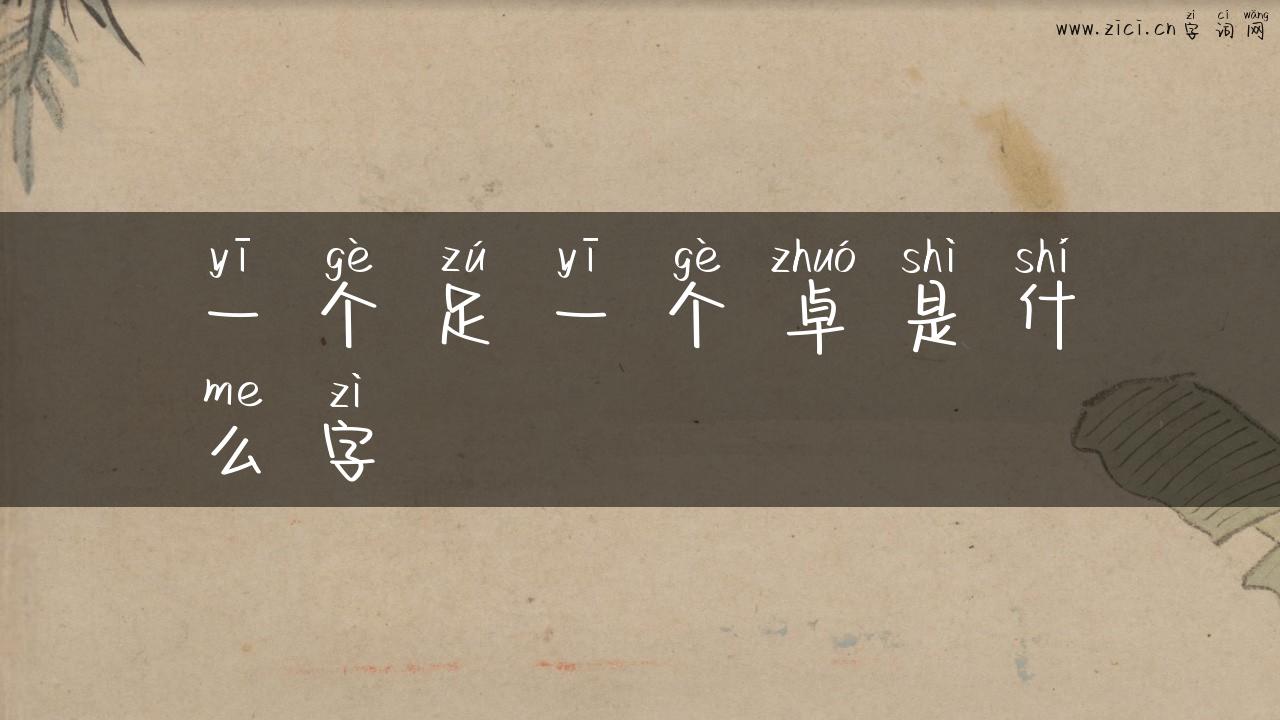 zì cí wǎng
www.zici.cn 字词网
yī gè zú yī gè zhuó shì shí
一个足一个卓是什
me zì
么字